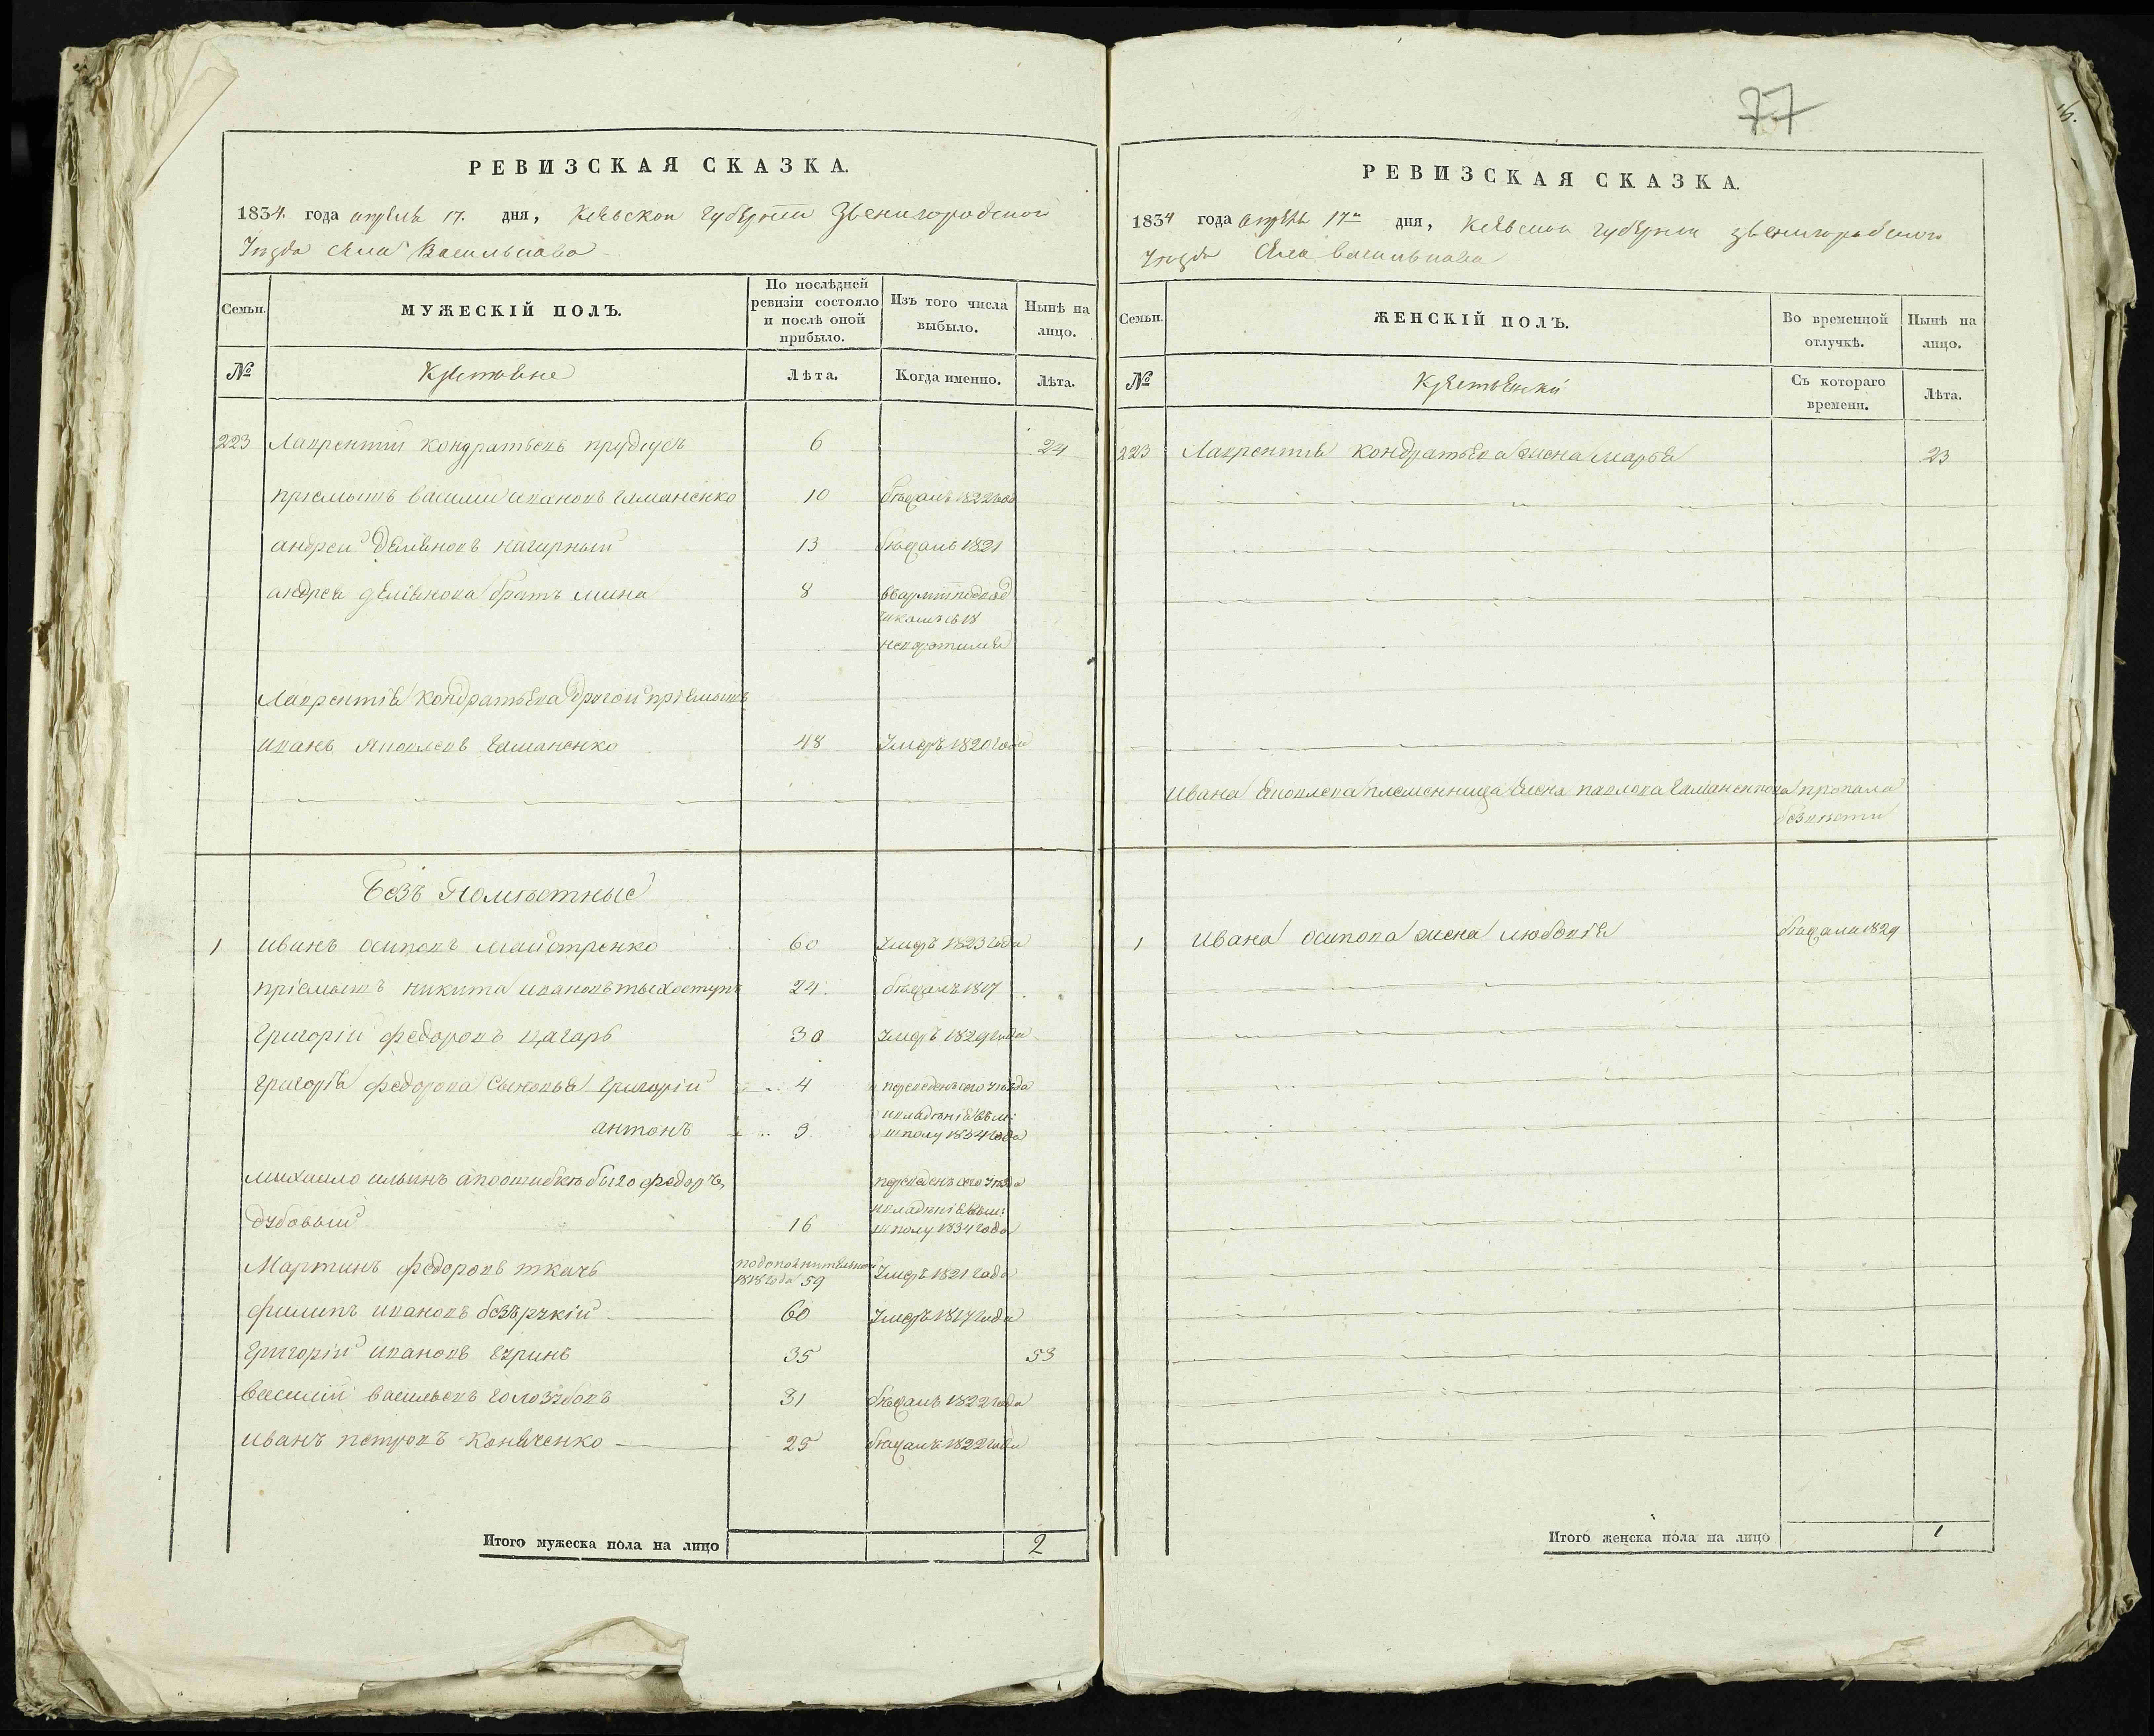 77
РЕВИЗСКАЯ СКАЗКА.
1834. года апреля 17. дня, Киевской губернии Звенигородского
Уезда села Василькова
Семьи.
МУЖЕСКІЙ ПОЛЪ.
По послѣдней ревизіи состояло и послѣ оной прибыло.
Изъ того числа выбыло.
Нынѣ на лицо.
№
Крестьяне
Лѣта.
Когда именно.
Лѣта.
223 Лаврентий Кондратьевъ прудиусъ 6 24
приемышъ василий ивановъ 10 бежалъ 1822 года
андрей Демяновъ 13 бежалъ 1821
андрея демянова братъ мина 8
невозвратился
Лаврентия Кондратьева другой приемышъ
иванъ Яковлевъ 48 Умеръ 1820 года
Безъ Поместные
1 иванъ осиповъ майстренко 60 Умеръ 1823 года
приемышъ никита ивановъ 24. бежалъ 1817
Григорий федоровъ цагарь 30 Умеръ 1829 года
григория федорова Сыновья Григорий 4 переведенъ сего уезда
антонъ 3 шполу 1834 года
михаило ильинъ апоошибке было федоръ, переведенъ сего уезда
дубовый 16 шполу 1834 года
Мартинъ федоровъ ткачь 1818 года 59 Умеръ 1821 года
филипъ ивановъ безърукий 60 Умеръ 1817 года
Григорий ивановъ 35 53
Василий васильевъ голозубовъ 31 бежалъ 1822 года
иванъ петровъ Коняченко 25 бежалъ 1822 года
Итого мужеска пола на лицо 2
РЕВИЗСКАЯ СКАЗКА.
1834 года апреля 17 дня, Киевской губернии звенигородского
Уезда Села василькова
Семьи.
ЖЕНСКІЙ ПОЛЪ.
Во временной отлучкѣ.
Нынѣ на лицо.
№
Крестьянки
Съ котораго времени.
Лѣта.
223 Лаврентия Кондратьева жена марья 23
ивана Яковлева племенница павлова пропала
безвести
1 ивана осипова жена любовья бежала 1829
Итого женска пола на лицо 1